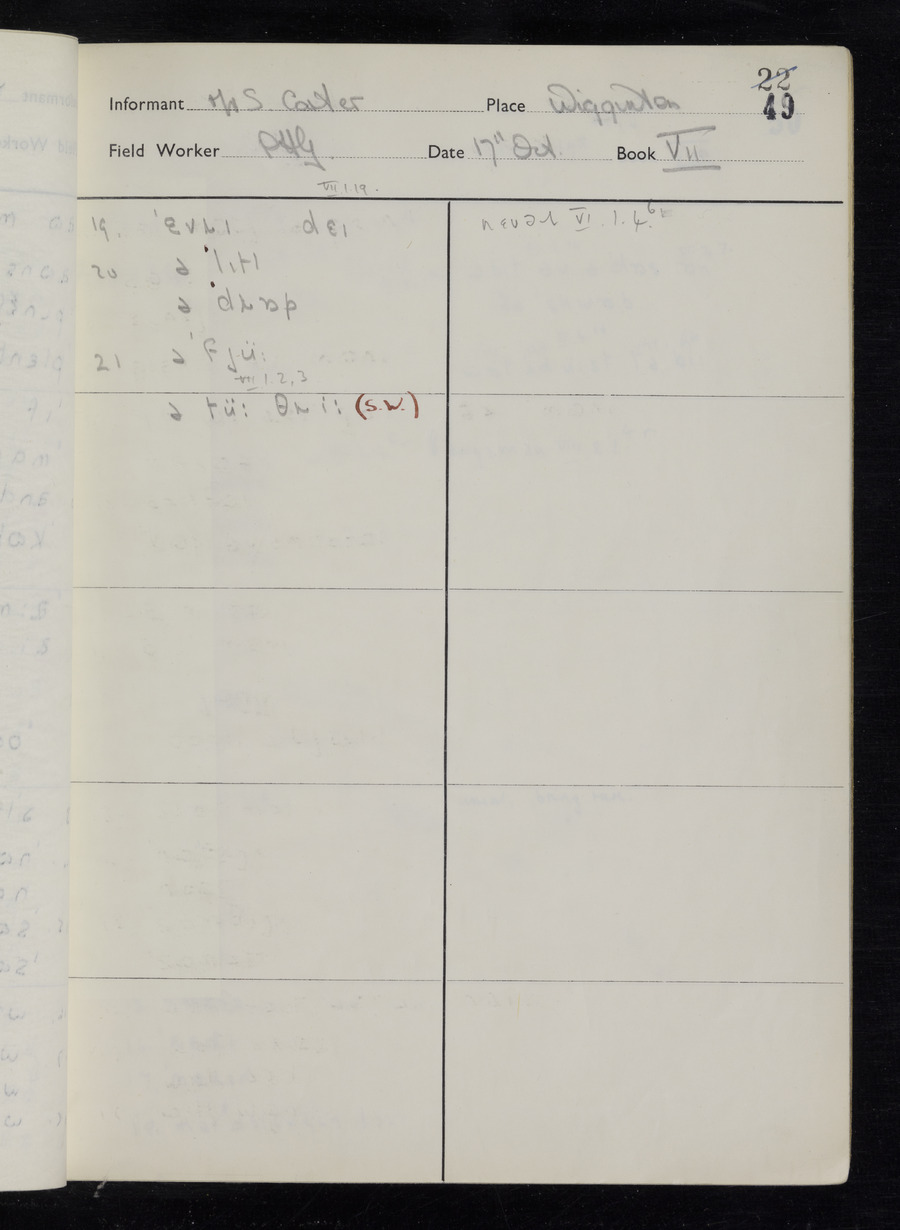 22
49
Informant Mrs S. Carter Place Wigginton
Field Worker PHG Date 17th Oct. Book VII
VII 1.19.
19. ˈɛvɹɪ dɛɪ
20 ə ˈlɪtl
ə ˈdɹɒp
21 ə ˈfjü:
VII 1.2,3
ə tü: θɹi: (S.W.)
VI. 1. 4.